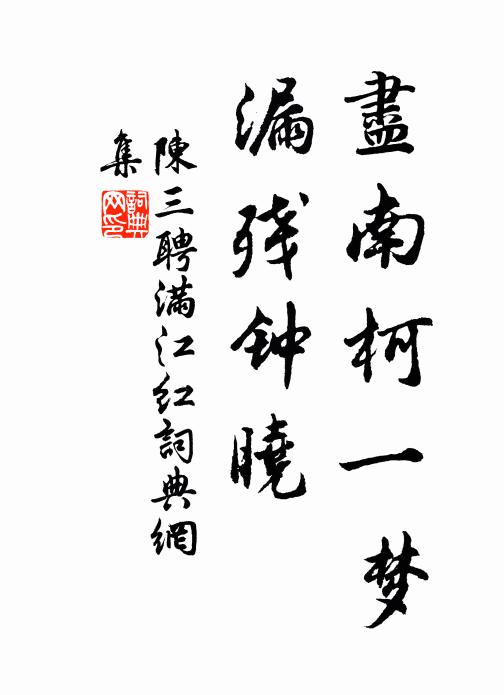 盡南柯一梦
漏残钟曉
陳三聘滿江红詞典網
集
詞典
网印